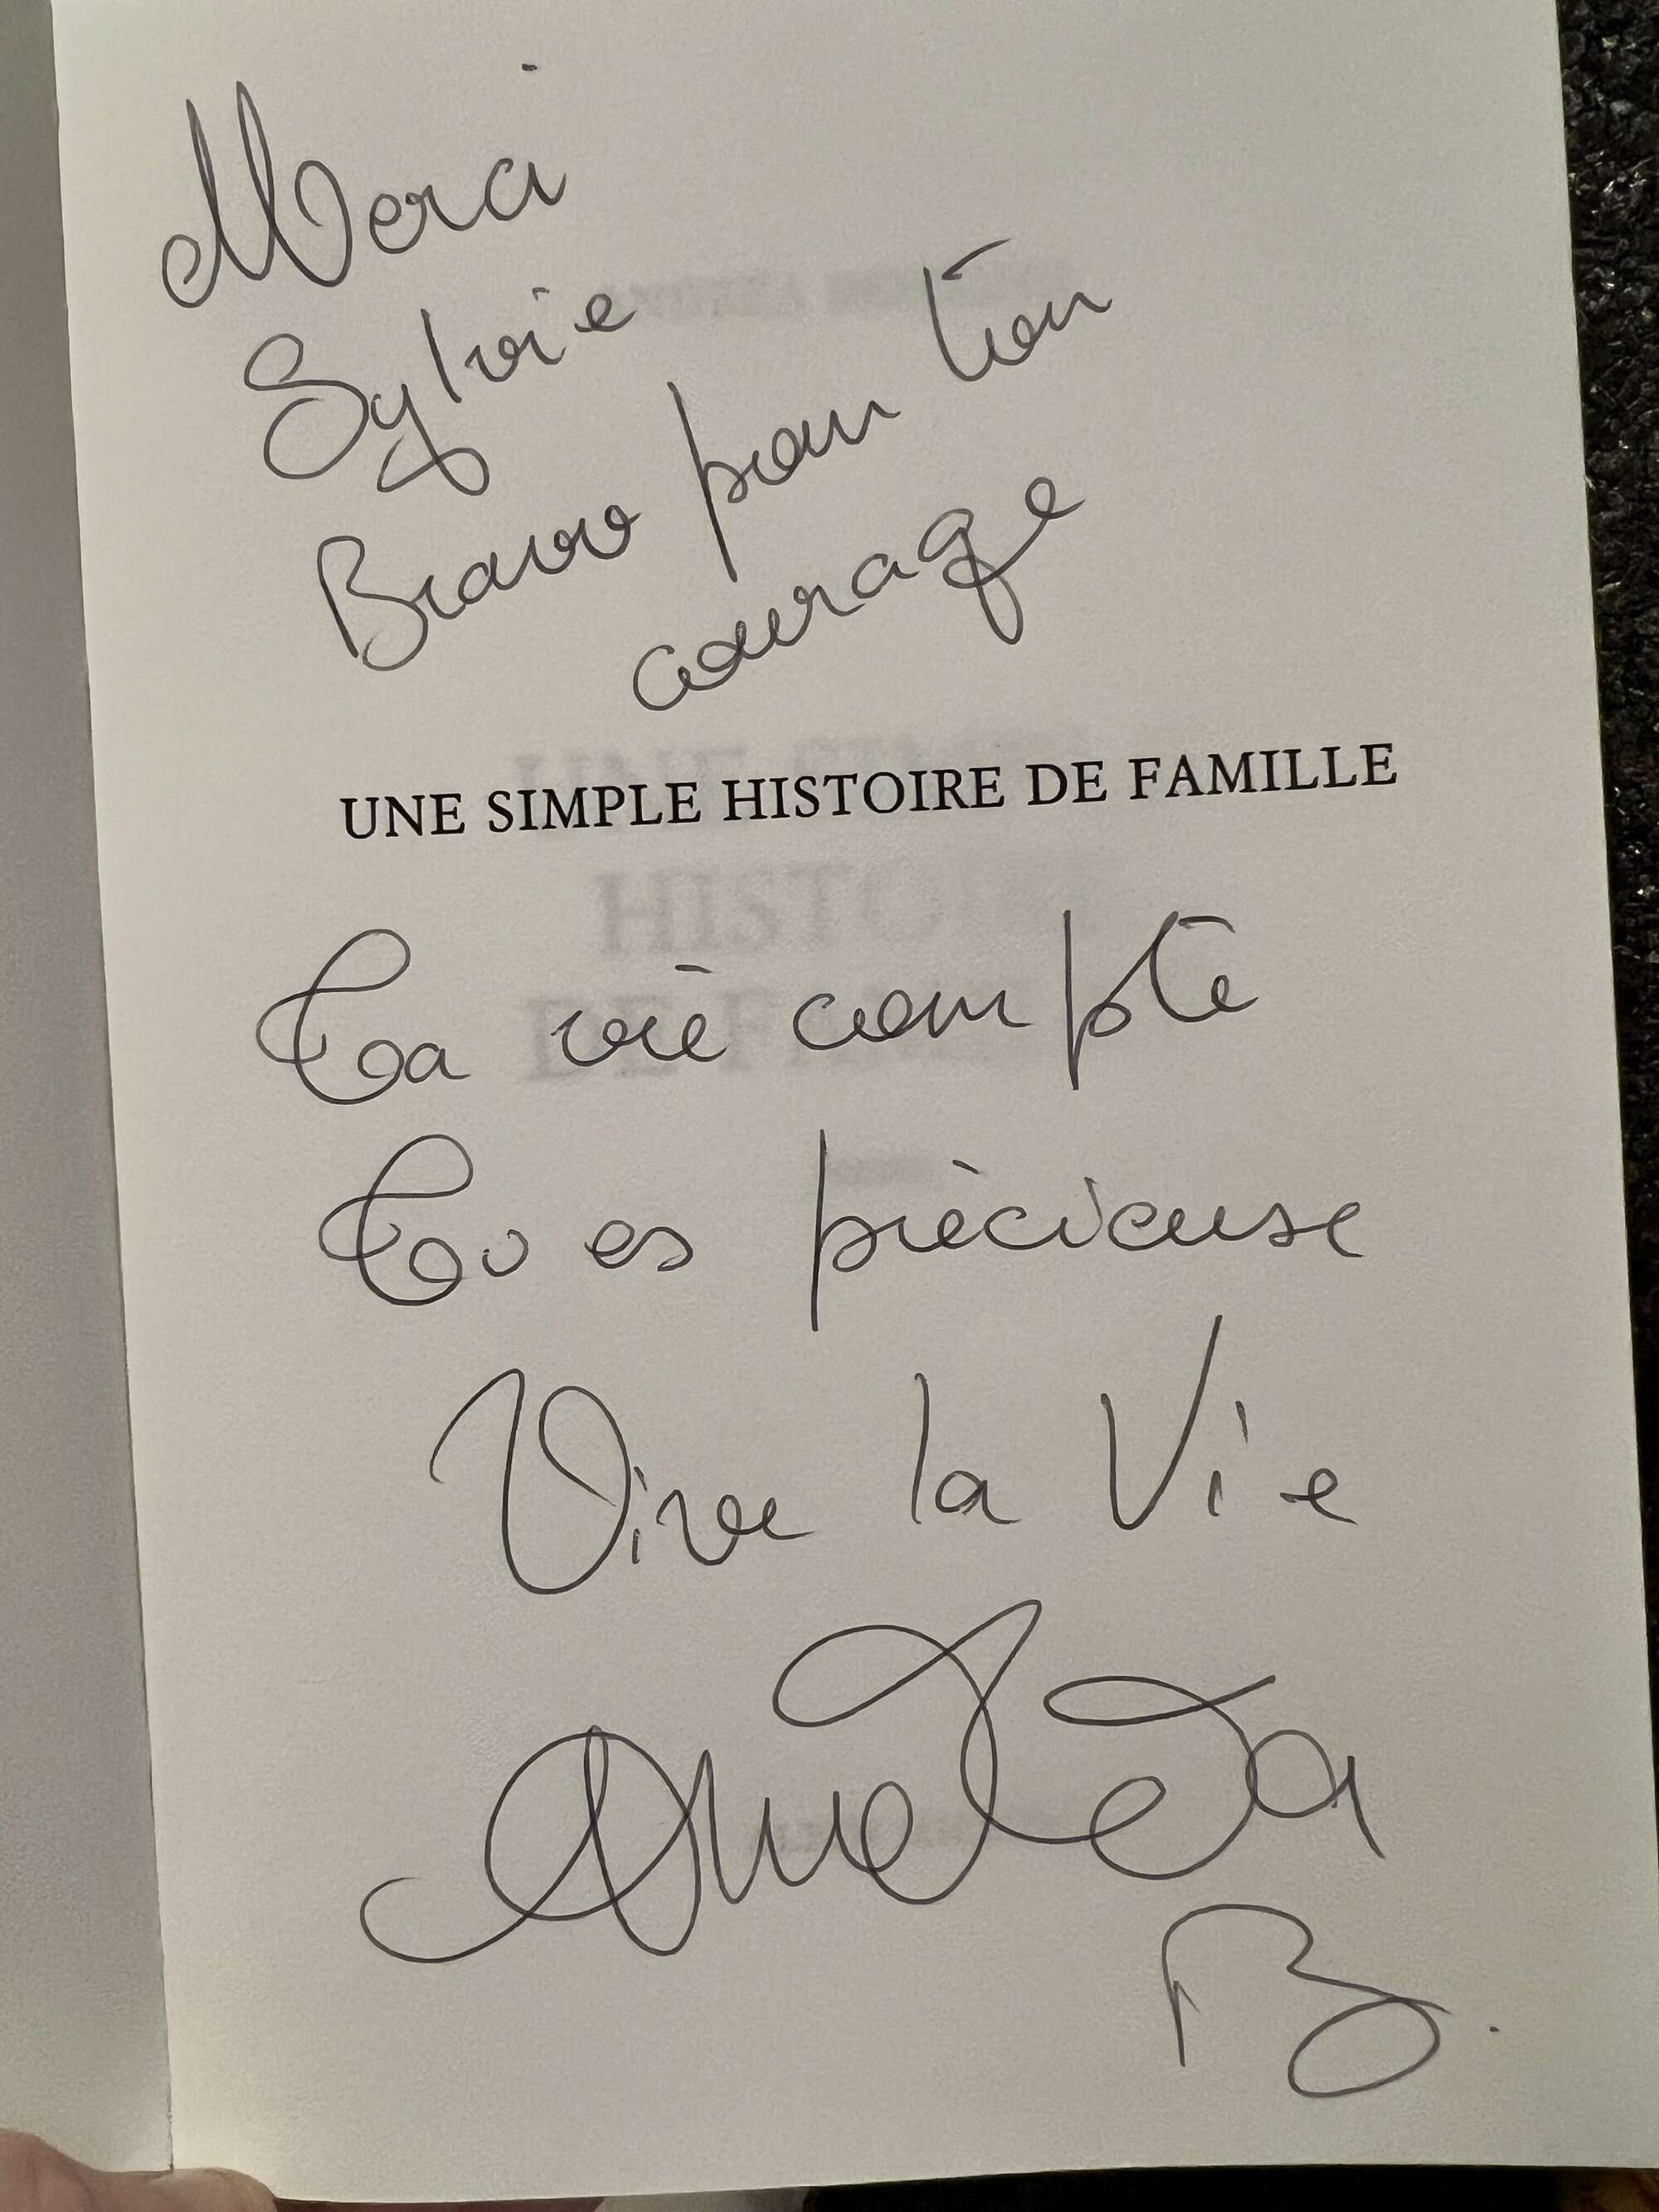 Merci
Sylvie
Bravo pour ton
courage
UNE SIMPLE HISTOIRE DE FAMILLE
Ta vie compte
Tu es précieuse
Vive la Vie
Andréa
B.
HISTOI